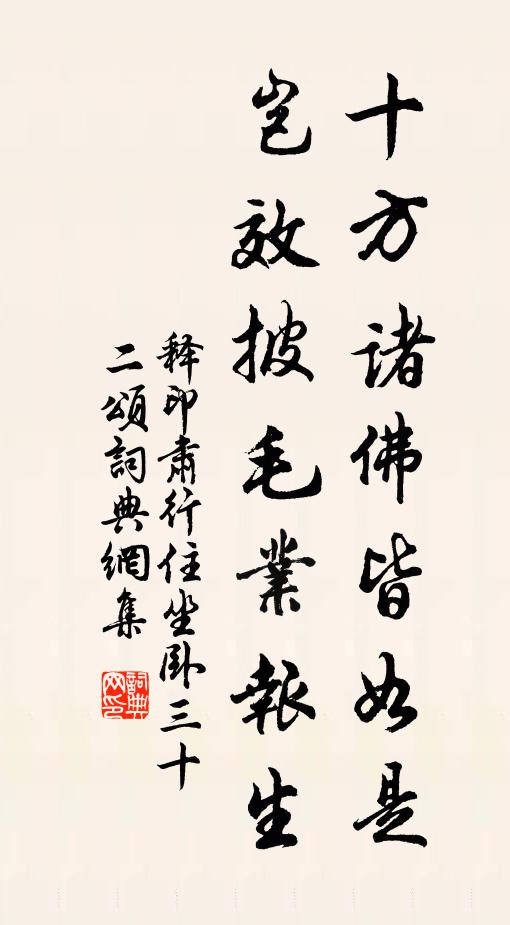 十方诸佛皆如是
岂效披毛業報生
释印肃行住坐卧三十
二頌詞典網集
詞典网印